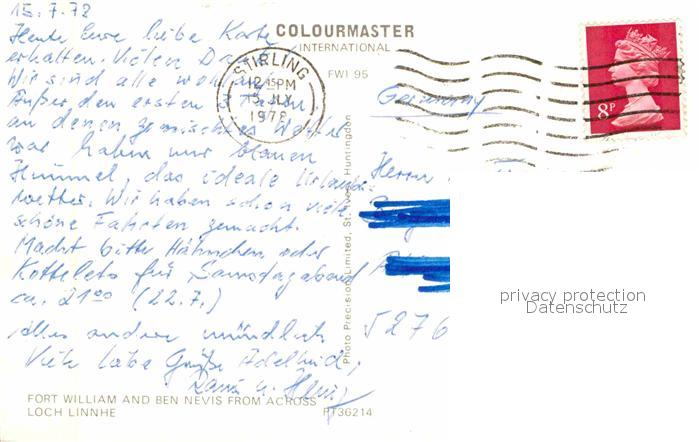 15.7.78
Heute Eure liebe Karte
erhalten. Vielen Dank
Wir sind alle wohlauf
Außer den ersten Tagen
an denen gemischtes Wetter
war haben wir blauen
Himmel, das ideale Urlaubs
wetter. Wir haben schon viele
schöne Fahrten gemacht.
Macht bitte Hähnchen oder
Kottelets für Samstagabend
ca. 21⁰⁰ (22.7.)
Alles andere mündlich
Viele liebe Grüße Adelheid,
u. Heinz
COLOURMASTER
INTERNATIONAL
FWI 95
STIRLING
12 15PM
15 JLY
1978
8P
Germany
Herrn
5276
Photo Precision Limited, St. Ives, Huntingdon
privacy protection
Datenschutz
FORT WILLIAM AND BEN NEVIS FROM ACROSS
LOCH LINNHE
PT36214